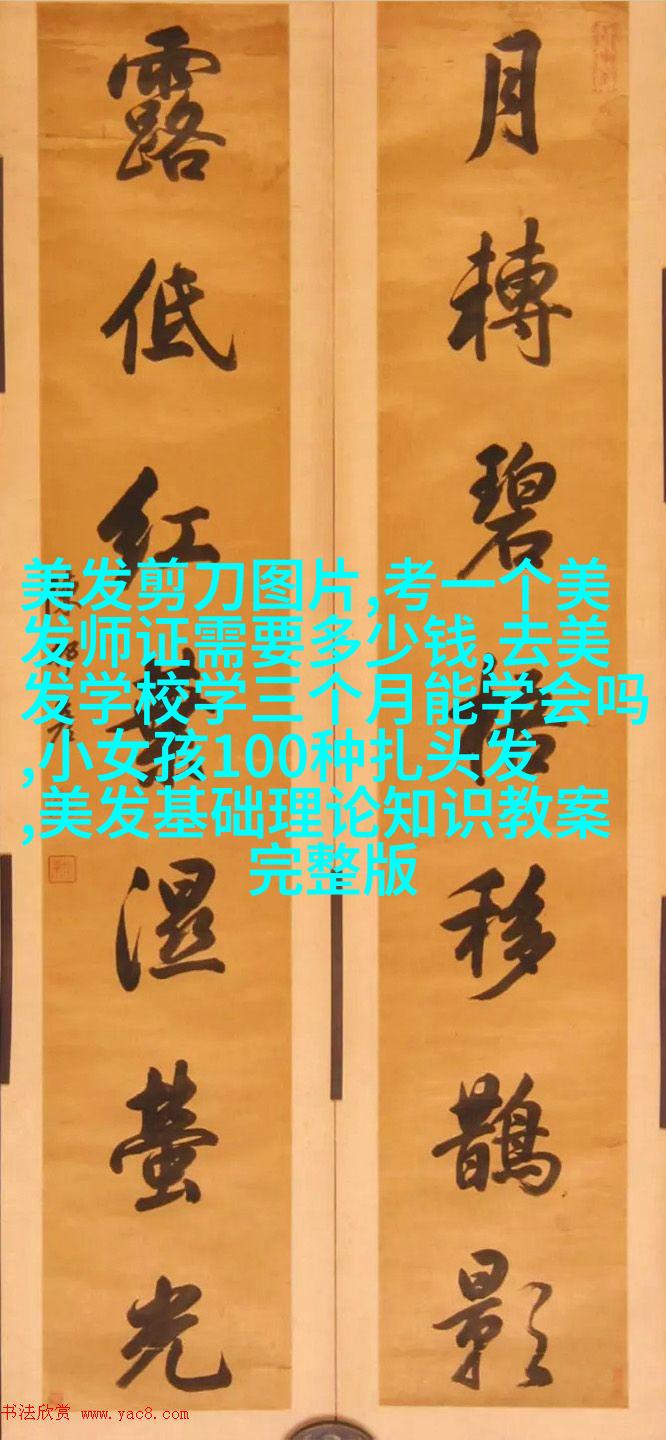 月轉碧梧移鵲影
露低紅葉濕螢光
美发剪刀图片,考一个美
发师证需要多少钱,去美
发学校学三个月能学会吗
,小女孩100种扎头发
,美发基础理论知识教案
完整版
书法欣赏 www.yac8.com